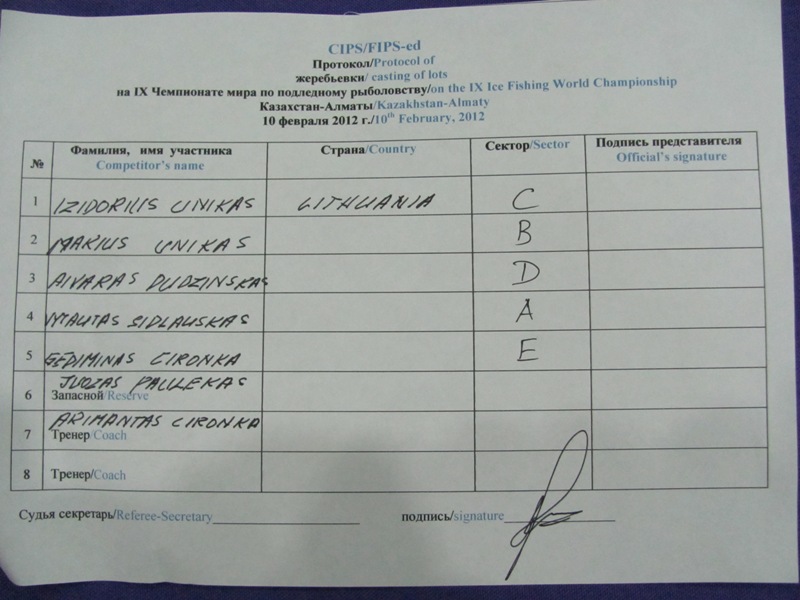 CIPS/FIPS-ed
Протокол/Protocol of
жеребьевки/ casting of lots
на IX Чемпионате мира по подледному рыболовству/on the IX Ice Fishing World Championship
Казахстан-Алматы/Kazakhstan-Almaty
10 февраля 2012 г./10th February, 2012
№ Фамилия, имя участника Страна/Country Сектор/Sector Подпись представителя
Competitor's name Official's signature
1 IZIDORIUS UNIKAS LITHUANIA C
2 MARIUS UNIKAS B
3 AIVARAS DUDZINSKAS D
4 VYTAUTAS SIDLAUSKAS A
5 GEDIMINAS CIRONKA E
JUOZAS PAULEKAS
6 Запасной/Reserve
ARIMANTAS CIRONKA
7 Тренер/Coach
8 Тренер/Coach
Судья секретарь/Referee-Secretary подпись/signature